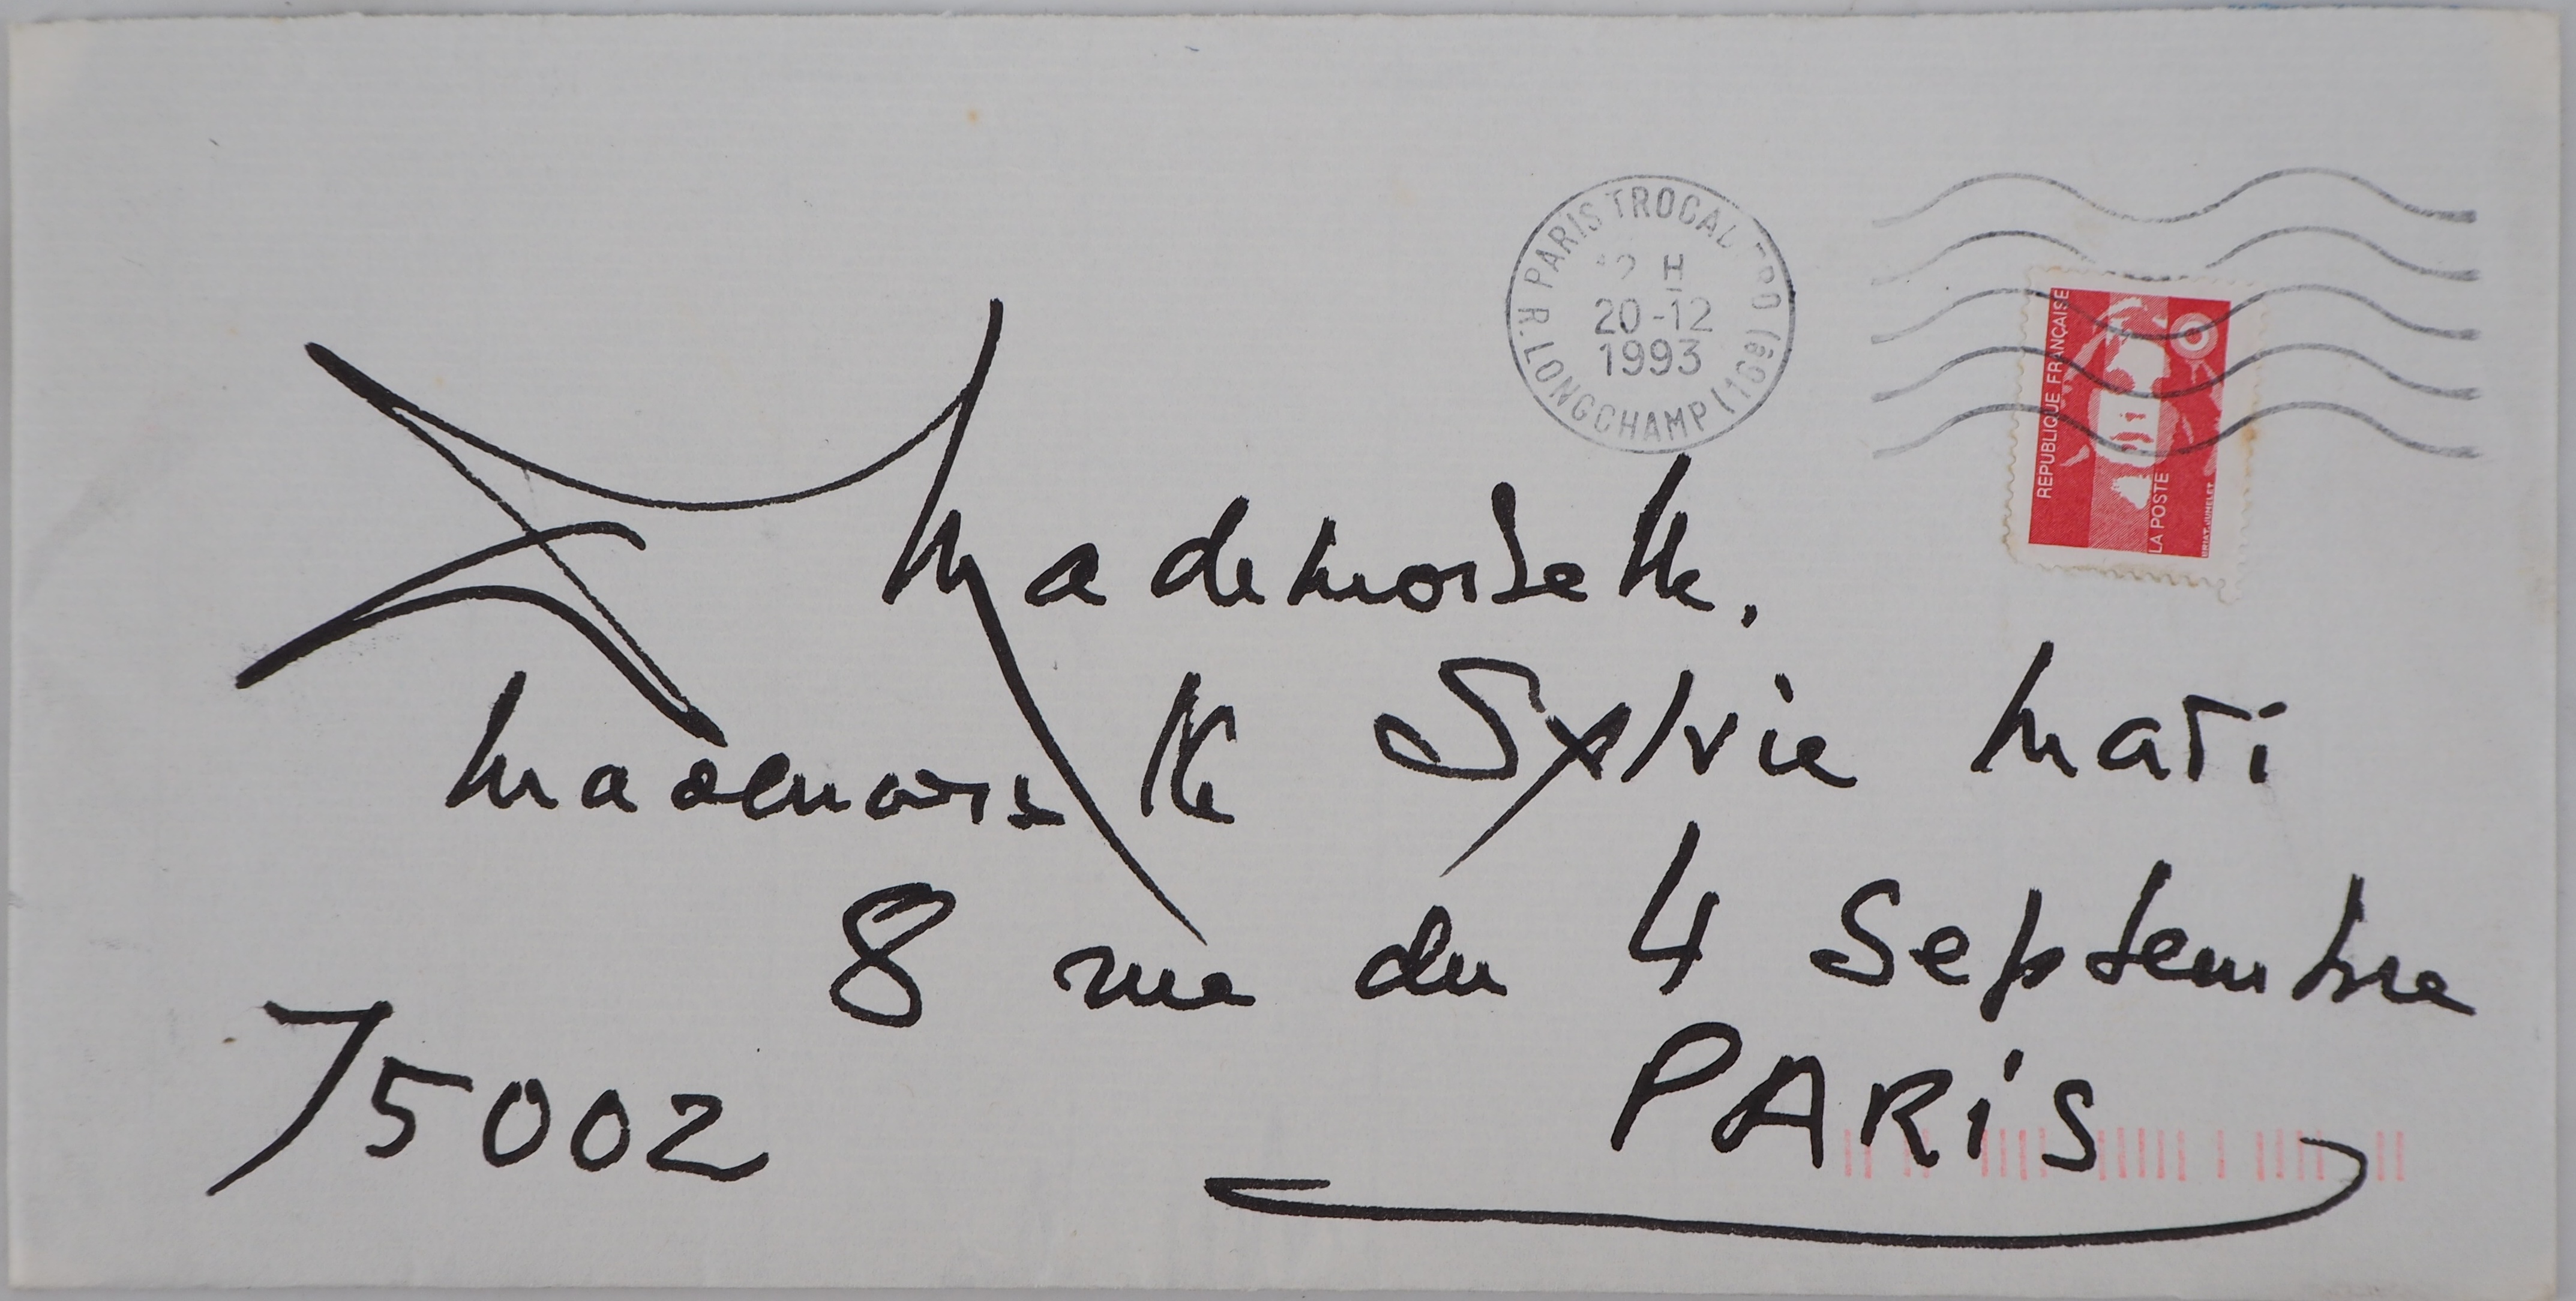 R.P. PARIS TROCADERO
12 H
20-12
1993
R. LONGCHAMP (16e)
REPUBLIQUE FRANÇAISE
LA POSTE
BRIAT. JUMELET
Mademoiselle,
Mademoiselle Sylvie Mati
8 rue du 4 Septembre
75002 PARIS